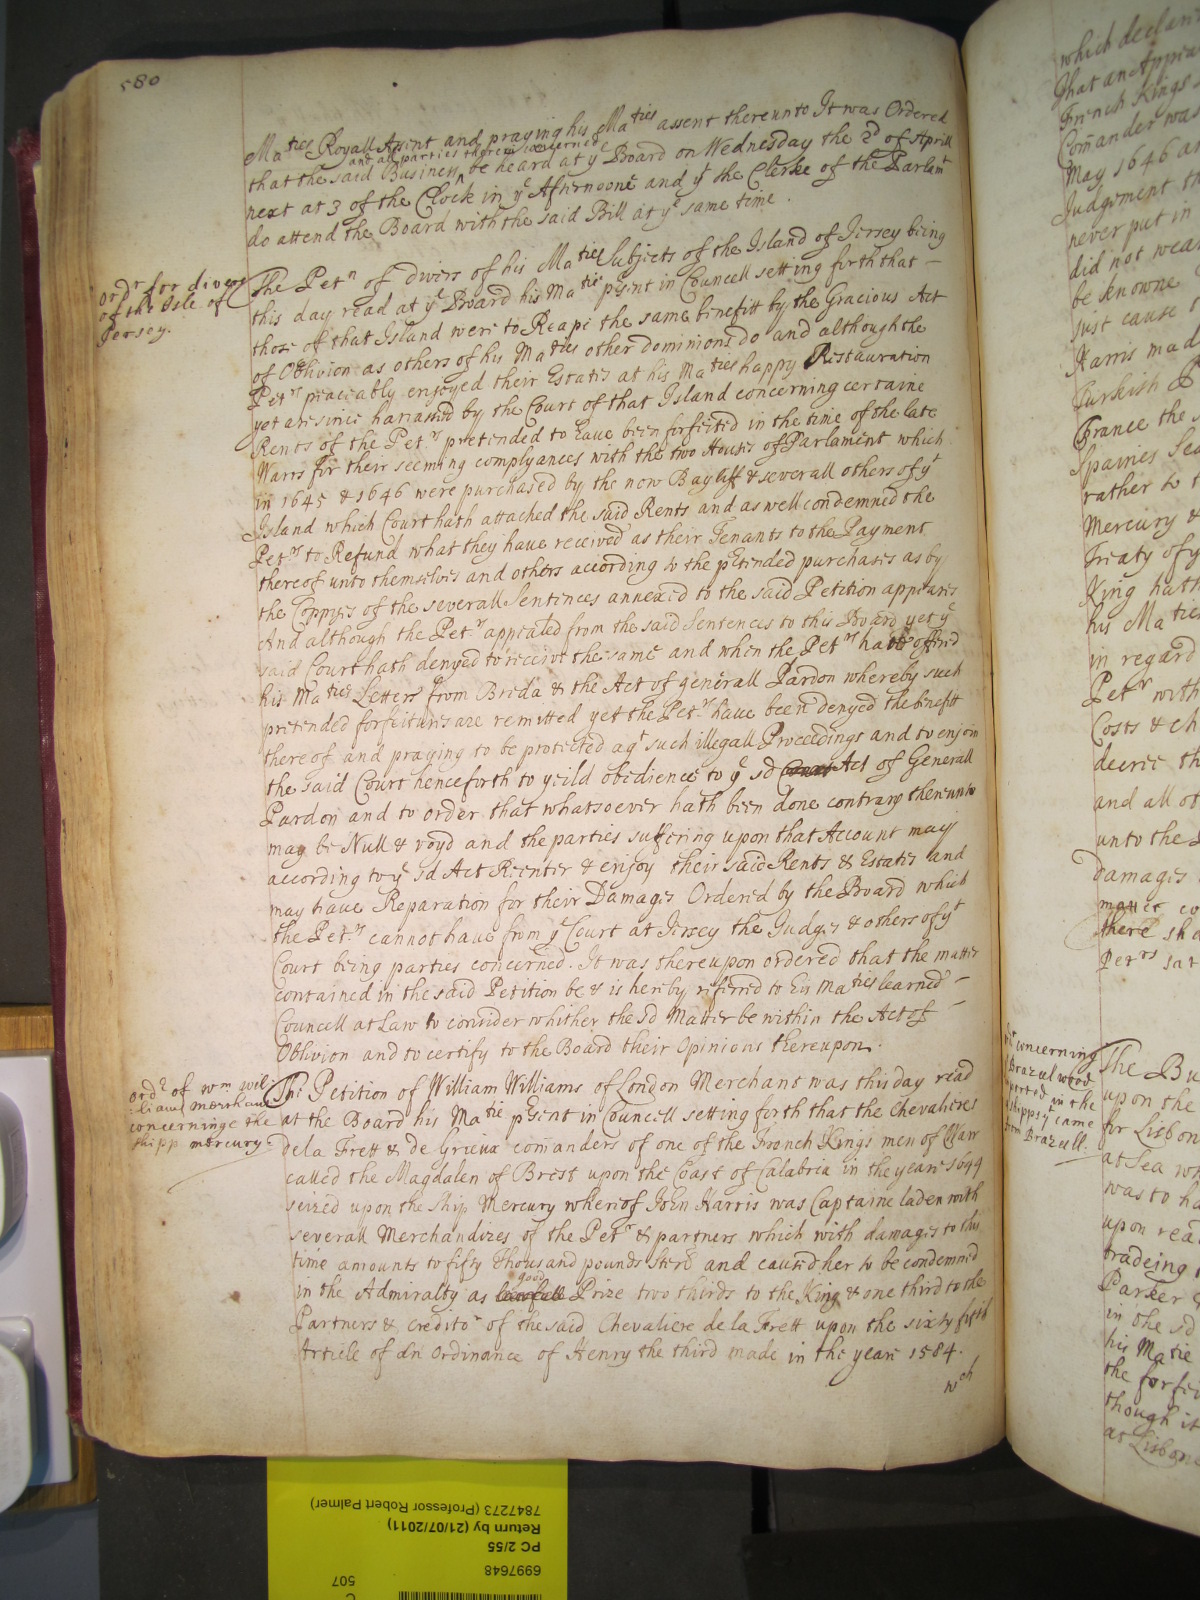 580
Ma ties Royall Assent and praying his Ma ties assent thereunto It was Ordered
and all parties therein concerned
that the said Business ^ be heard at ye Board on Wednesday the 2d of Aprill
next at 3 of the Clock in ye Afternoone and yt the Clerke of the Parlamt
do attend the Board with the said Bill at ye same time.
ordr for divers
of the Isle of
Jersey.
The Petn of divers of his Ma ties Subjects of the Island of Jersey being
this day read at ye Board his Ma tie psent in Councell setting forth that –
those of that Island were to Reape the same benefitt by the Gracious Act
of Oblivion as others of his Ma ties other dominions do and although the
Petrs peaceably enjoyed their Estates at his Ma ties happy Restauration
yet are since harassed by the Court of that Island concerning certaine
Rents of the Petrs pretended to have been forfeited in the time of the late
Warrs for their seeming complyances with the two Houses of Parlament which
in 1645 & 1646 were purchased by the now Bayliff & severall others of yt
Island which Court hath attached the said Rents and as well condemned the
Petrs to Refund what they have received as their Tenants to the Payment
thereof unto themselves and others according to the ptended purchases as by
the Coppyes of the severall Sentences annexed to the said Petition appeares
And although the Petrs appealed from the said Sentences to this Board yet ye
said Court hath denyed to receive the same and when the Petrs have offered
his Ma ties Letters from Breda & the Act of generall Pardon whereby such
pretended forfeitures are remitted yet the Petrs have been denyed the benefitt
thereof and praying to be protected agt such illegall Proceedings and to enjoin
the said Court henceforth to yeild obedience to ye sd Court Act of Generall
Pardon and to order that whatsoever hath been done contrary thereunto
may be Null & voyd and the parties suffering upon that Account may
according to ye sd Act Reenter & enjoy their said Rents & Estates and
may have Reparation for their Damages Ordered by the Board which
the Petrs cannot have from ye Court at Jersey the Judges & others of yt
Court being parties concerned. It was thereupon ordered that the matter
contained in the said Petition be & is hereby referred to his Ma ties learned –
Councell at Law to consider whither the sd Matter be within the Act of –
Oblivion and to certify to the Board their Opinions thereupon.
ordr of wm wil-
liams merchant
concerninge the
shipp mercury.
The Petition of William Williams of London Merchant was this day read
at the Board his Ma tie psent in Councell setting forth that the Chevalieres
de la Frett & de Grieux comanders of one of the French Kings men of Warr
called the Magdalen of Brest upon the Coast of Calabria in the yeare 1644
seized upon the Ship Mercury whereof John Harris was Captaine laden with
severall Merchandizes of the Petr & partners which with damages to this
time amounts to fifty thousand pounds sterl and caused her to be condemned
good
in the Admiralty as lawfull Prize two thirds to the King & one third to the
Partners & creditors of the said Chevaliere de la Frett upon the sixty fifth
Article of an Ordinance of Henry the third made in the yeare 1584.
wch
which declar
That an Appea
French Kings
Comander was
May 1646 an
Judgement th
never put in
did not wea
be knowne
just cause t
Harris mad
Turkish P
France the
Spaines Sea
rather to t
Mercury &
Treaty of y
King hath
his Ma ties
in regard
Petr with
Costs & ch
decree th
and all ot
unto the
Damages
matter co
there sha
Petrs sat
concerning
Brazul wood
ported in the
shipps yt came
from Brazull.
The Bu
upon the
for Lisbon
at Sea wh
was to ha
upon rea
tradeing
Parker
in the sd
his Ma tie
the forfei
though it
at Lisbone
6997648
PC 2/55
Return by (21/07/2011)
7847273 (Professor Robert Palmer)
507